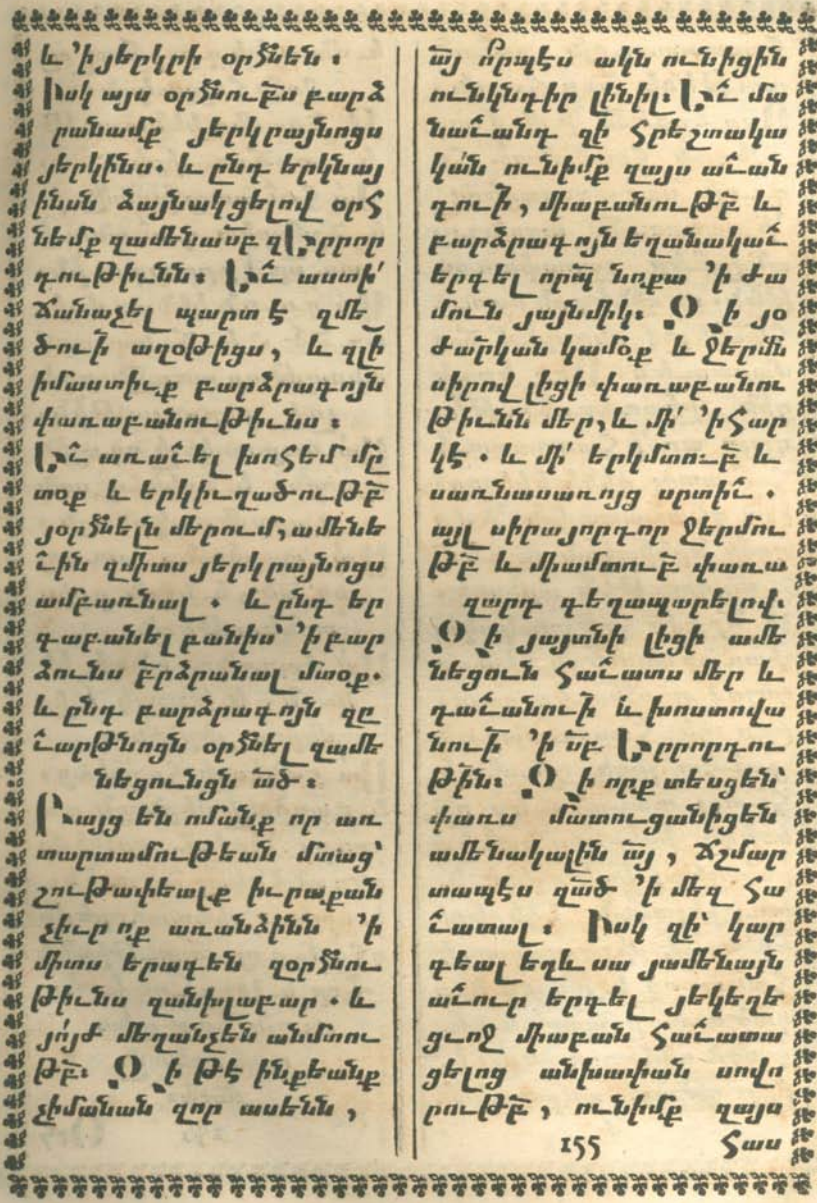 և ՚ի յերկրի օրհնեն ։
Իսկ այս օրհնու՟բս բարձ
րանամք յերկրայնոցս
յերկինս. և ընդ երկնայ
ինսն ձայնակցելով օրհ
նեմք զամենասբ զԵրրոր
դութիւնն։ ԵՒւ աստի՛
ճանաչել պարտ է զմե
ծուի աղօթիցս, և զլի
իմաստիւք բարձրագոյն
փառաբանութիւնս ։
ԵՒւ առաւել խոհեմ մը
տօք և երկիւղածութբ
յօրհնելն մերում, ամենե
ւին զմիտս յերկրայնոցս
ամբառնալ . և ընդ եր
գաբանել բանիս՝ ՚ի բար
ձունս բրձրանալ մտօք.
և ընդ բարձրագոյն զը
ւարթնոցն օրհնել զամե
նեցունցն ած ։
Բայց են ոմանք որ առ
տարտամութեան մտաց՝
շութափեալք իւրաքան
չիւր ոք առանձինն ՚ի
միտս երագեն զօրհնու
թիւնս զանխլաբար . և
յոյժ մեղանչեն անմտու
թբ։ Զի թէ ինքեանք
չիմանան զոր ասենն ,
այ որպէս ակն ունիցին
ունկնդիր լինիլ։ ԵՒւ մա
նաւանդ զի հրեշտակա
կան ունիմք զայս աւան
դուի , միաբանութբ և
բարձրագոյն եղանակաւ
երգել որպ նոքա ՚ի ժա
մուն յայնմիկ։ Զի յօ
ժարկան կամօք և ջերմն
սիրով լիցի փառաբանու
թիւնն մեր, և մի՛ ՚ի հար
կէ . և մի՛ երկմտուբ և
սառնասառոյց սրտիւ .
այլ սիրայորդոր ջերմու
թբ և միամտուբ փառա
զարդ գեղապարելով.
Զի յայտնի լիցի ամե
նեցուն հաւատս մեր և
դաւանուի և խոստովա
նուի ՚ի սբ Երրորդու
թին։ Զի որք տեսցեն՝
փառս մատուցանիցեն
ամենակալին այ , ճշմար
տապէս զած ՚ի մեզ հա
ւատալ ։ Իսկ զի՝ կար
գեալ եղև սա յամենայն
աւուր երգել յեկեղե
ցւոջ միաբան հաւատա
ցելոց անխափան սովո
րութբ , ունիմք զայս
155 հաս